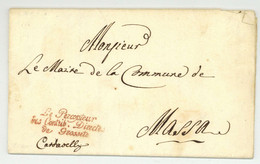 Monsieur
Le Maire de la Commune de
Massa
Le Percepteur
des Contrib. Directes
de Grosseto